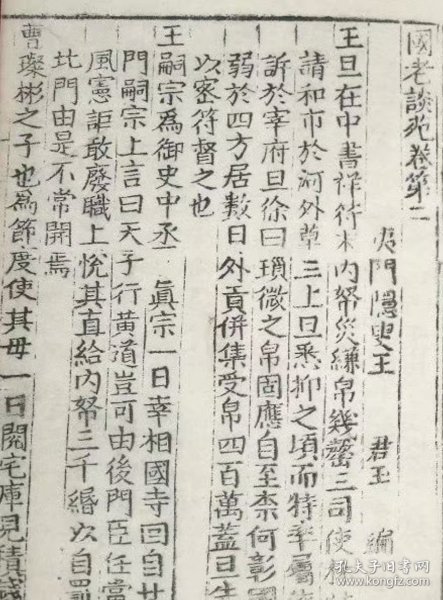 國老談苑卷第二
夷門隱叟王 君玉 編
王旦在中書祥符末內帑災縑帛幾罄三司使
請和市於河外草三上旦悉抑之頃而特率屬
訴於宰府旦徐曰瑣微之帛固應自至柰何彰國
弱於四方居數日外貢併集受帛四百萬蓋旦先
以密符督之也
王嗣宗為御史中丞 真宗一日幸相國寺回自北
門嗣宗上言曰天子行黃道豈可由後門臣任當
風憲詎敢廢職上悅其直給內帑三千緡以自罰
北門由是不常開焉
曹璨彬之子也為節度使其母一日閱宅庫見積錢
孔夫子旧书网
www.kongfz.com